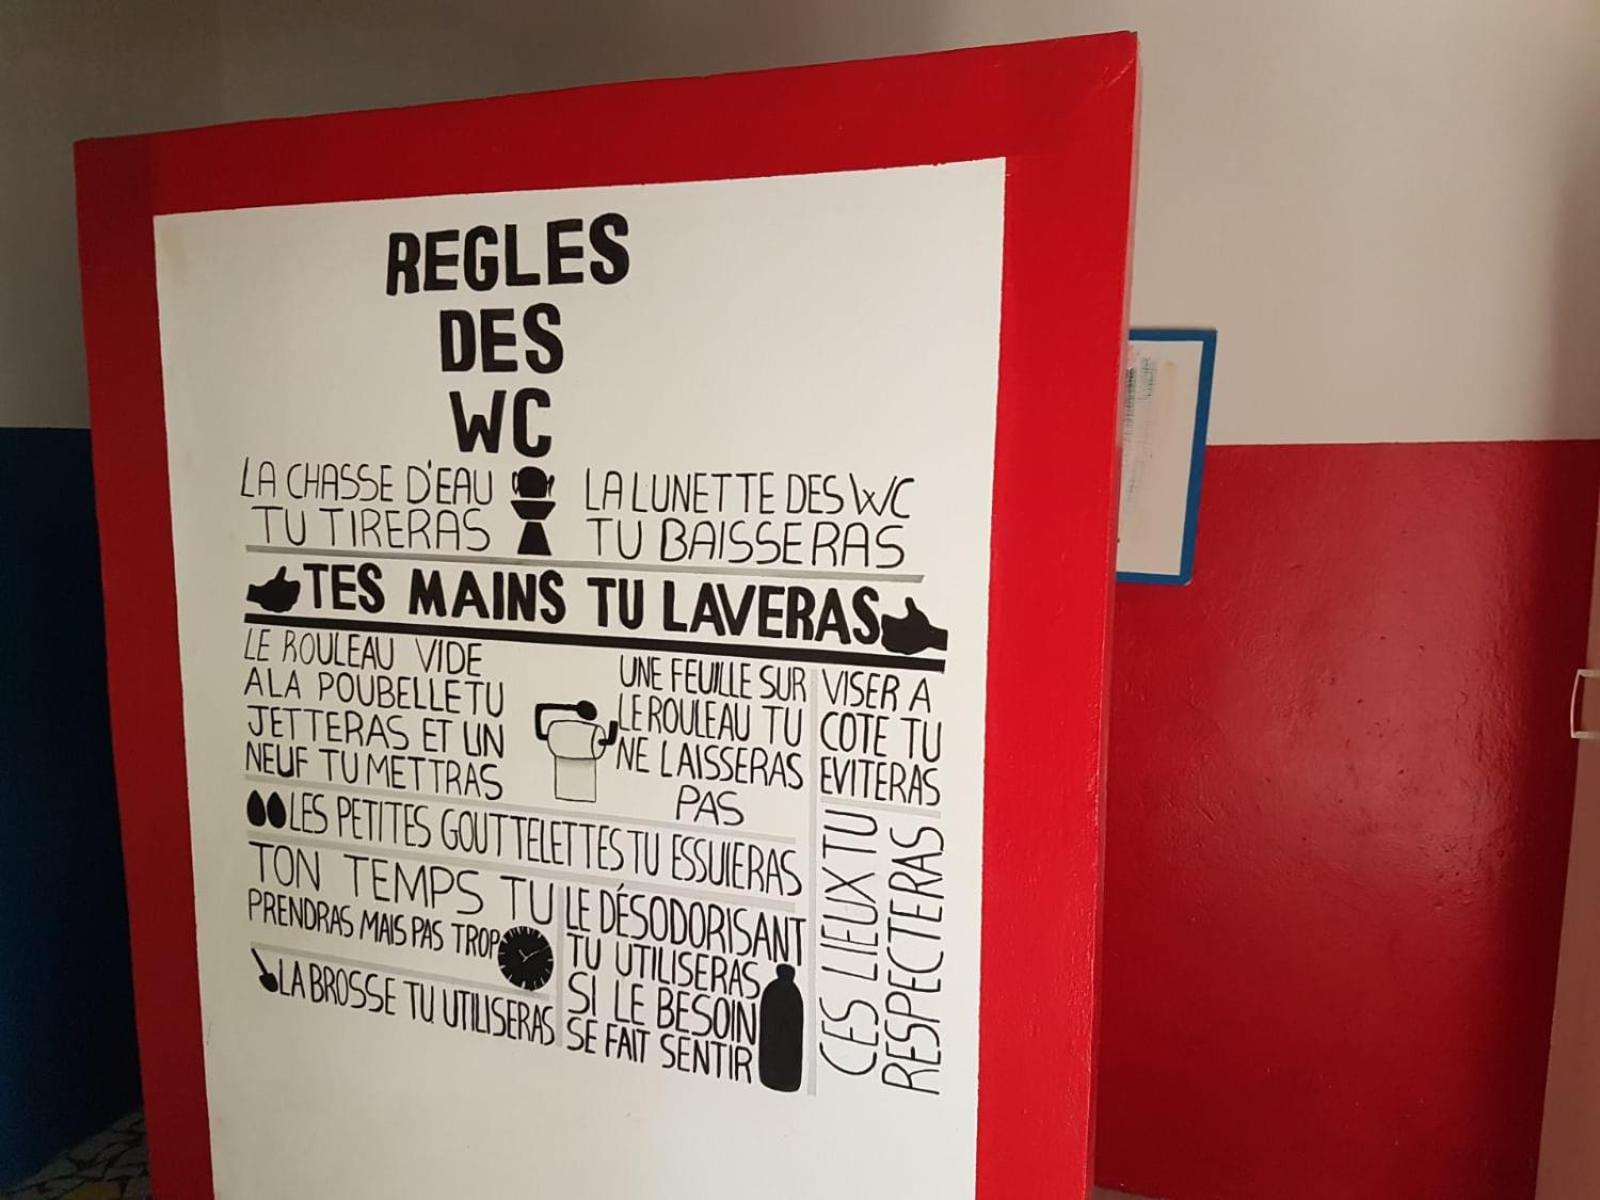 REGLES
DES
WC
LA CHASSE D'EAU
TU TIRERAS
LA LUNETTE DES WC
TU BAISSERAS
TES MAINS TU LAVERAS
LE ROULEAU VIDE
A LA POUBELLE TU
JETTERAS ET UN
NEUF TU METTRAS
UNE FEUILLE SUR
LE ROULEAU TU
NE LAISSERAS
PAS
VISER A
COTE TU
EVITERAS
LES PETITES GOUTTELETTES TU ESSUIERAS
TON TEMPS TU
PRENDRAS MAIS PAS TROP
LA BROSSE TU UTILISERAS
LE DÉSODORISANT
TU UTILISERAS
SI LE BESOIN
SE FAIT SENTIR
CES LIEUX TU
RESPECTERAS